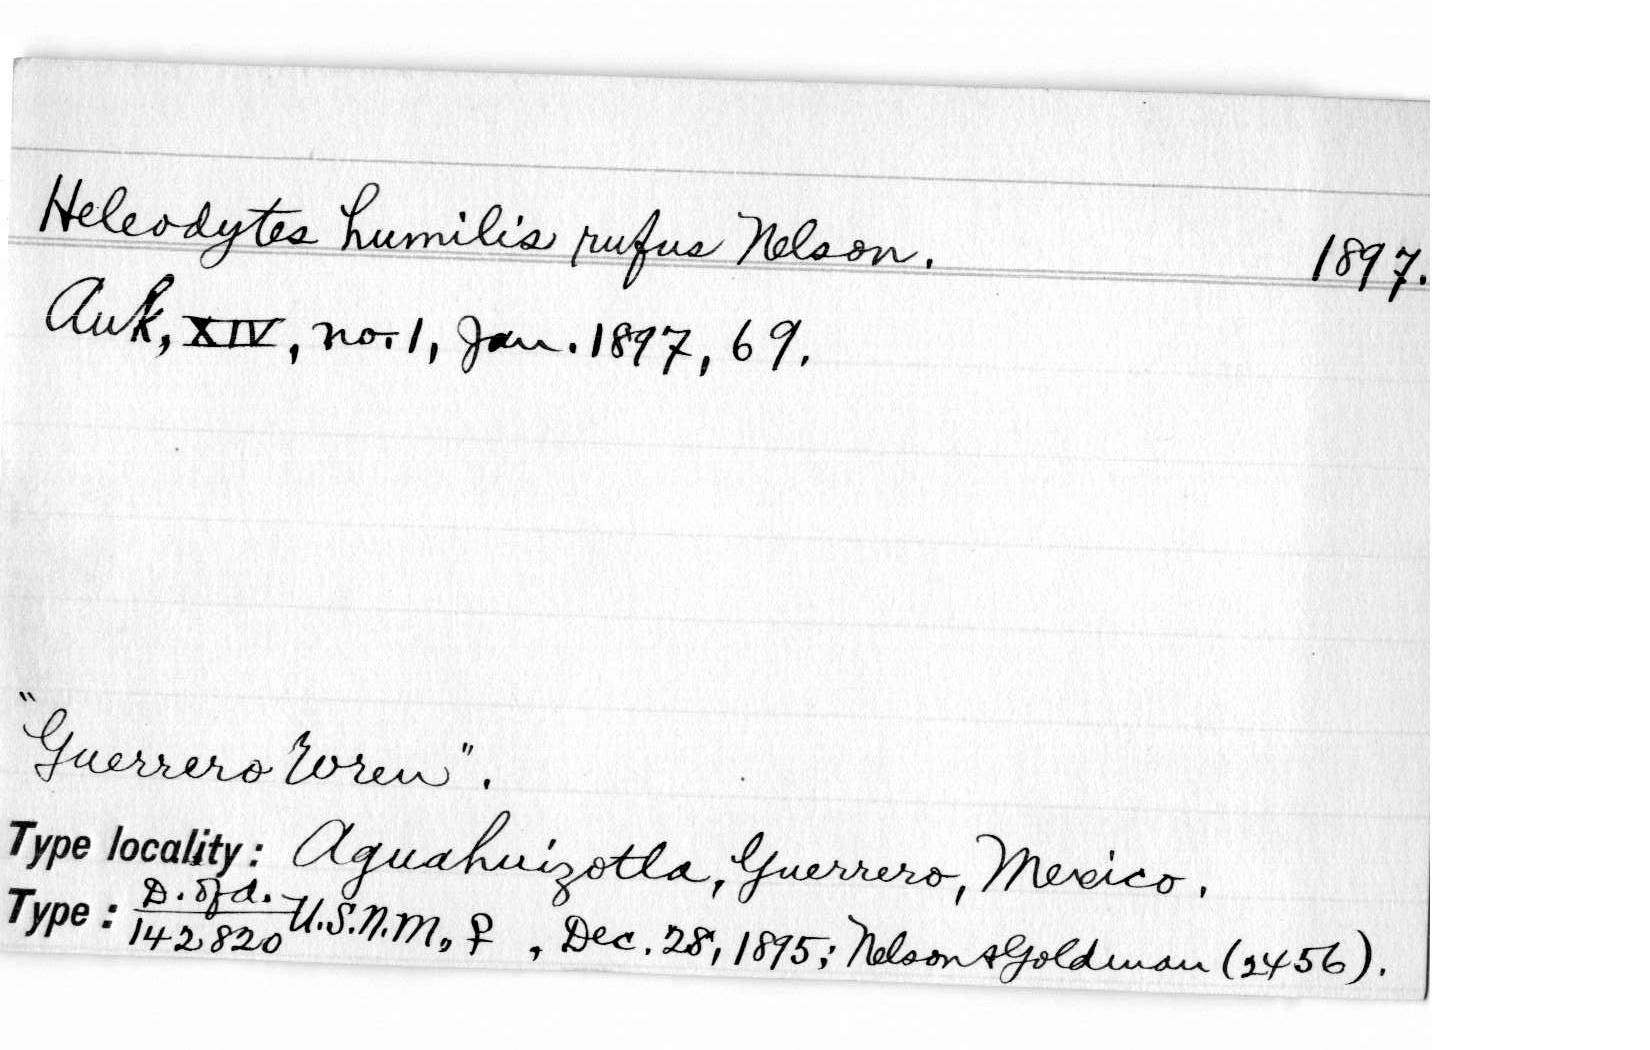 Heleodytes humilis rufus Nelson. 1897.
Auk, XIV, no. 1, Jan. 1897, 69.
"Guerrero Wren".
Type locality: Aguahuizotla, Guerrero, Mexico.
Type: D. of A. / 142820 U.S.N.M., ♀ , Dec. 28, 1895; Nelson & Goldman (2456).